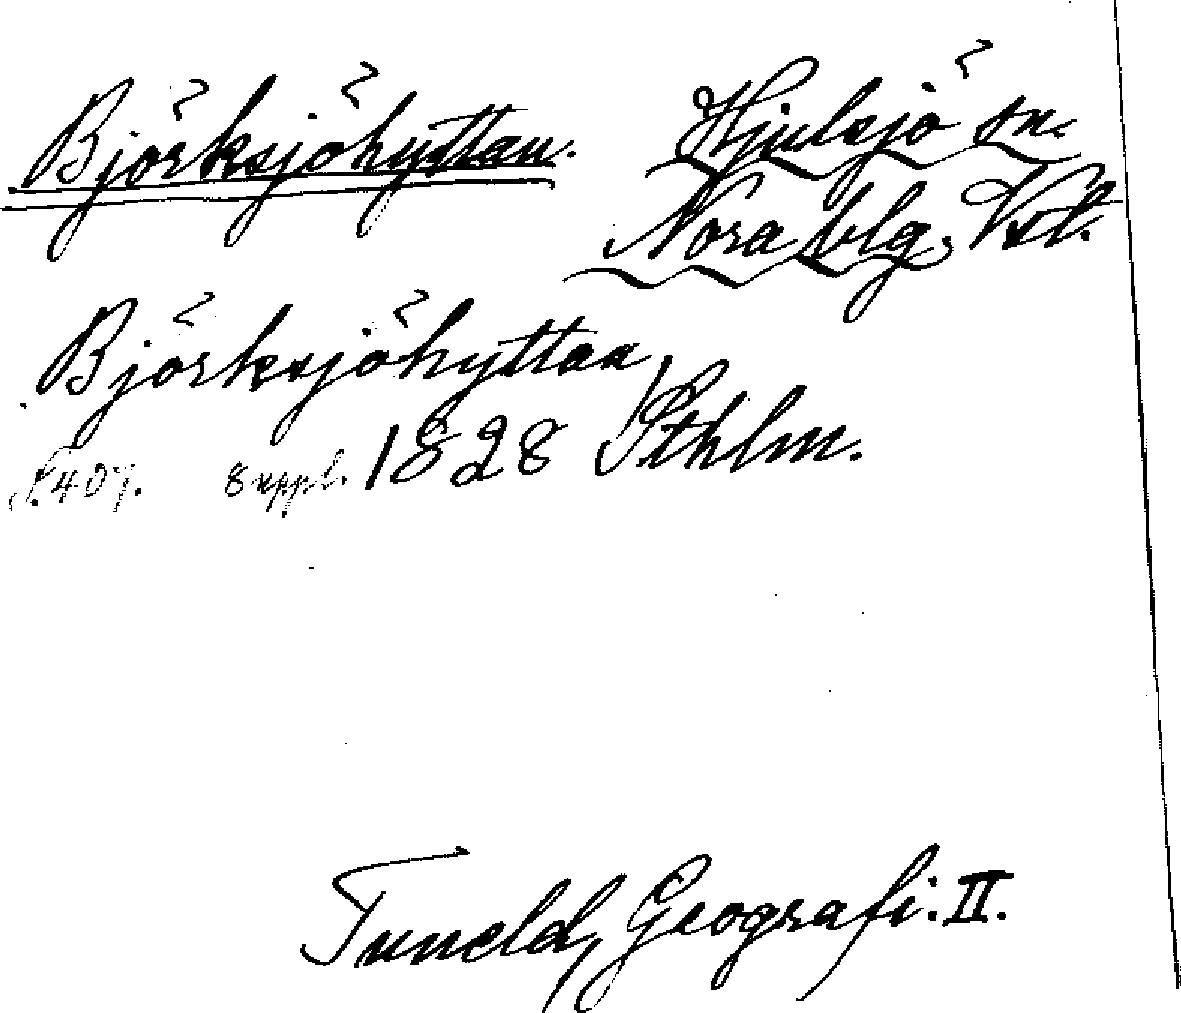 Björksjöhyttan. Hjulsjö sn.
Nora blg. Vstl.
Björksjöhyttan,
S. 407. Suppl. 1828 Sthlm.
Tuneld, Geografi. II.